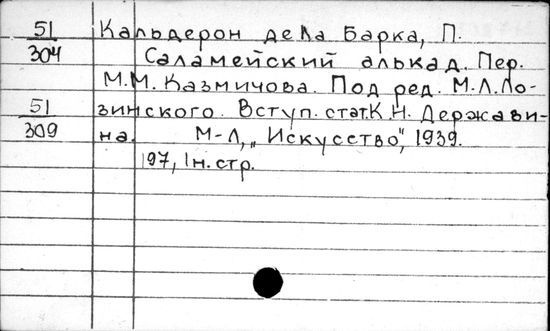 51 Кальдерон де ла Барка, П.
304 Саламейский алькад. Пер.
М.М. Казмичова. Под ред. М.Л.Ло-
51 зинского. Вступ. стат.К.Н. Держави-
309 на. М-Л, „Искусство", 1939.
197, 1н.стр.